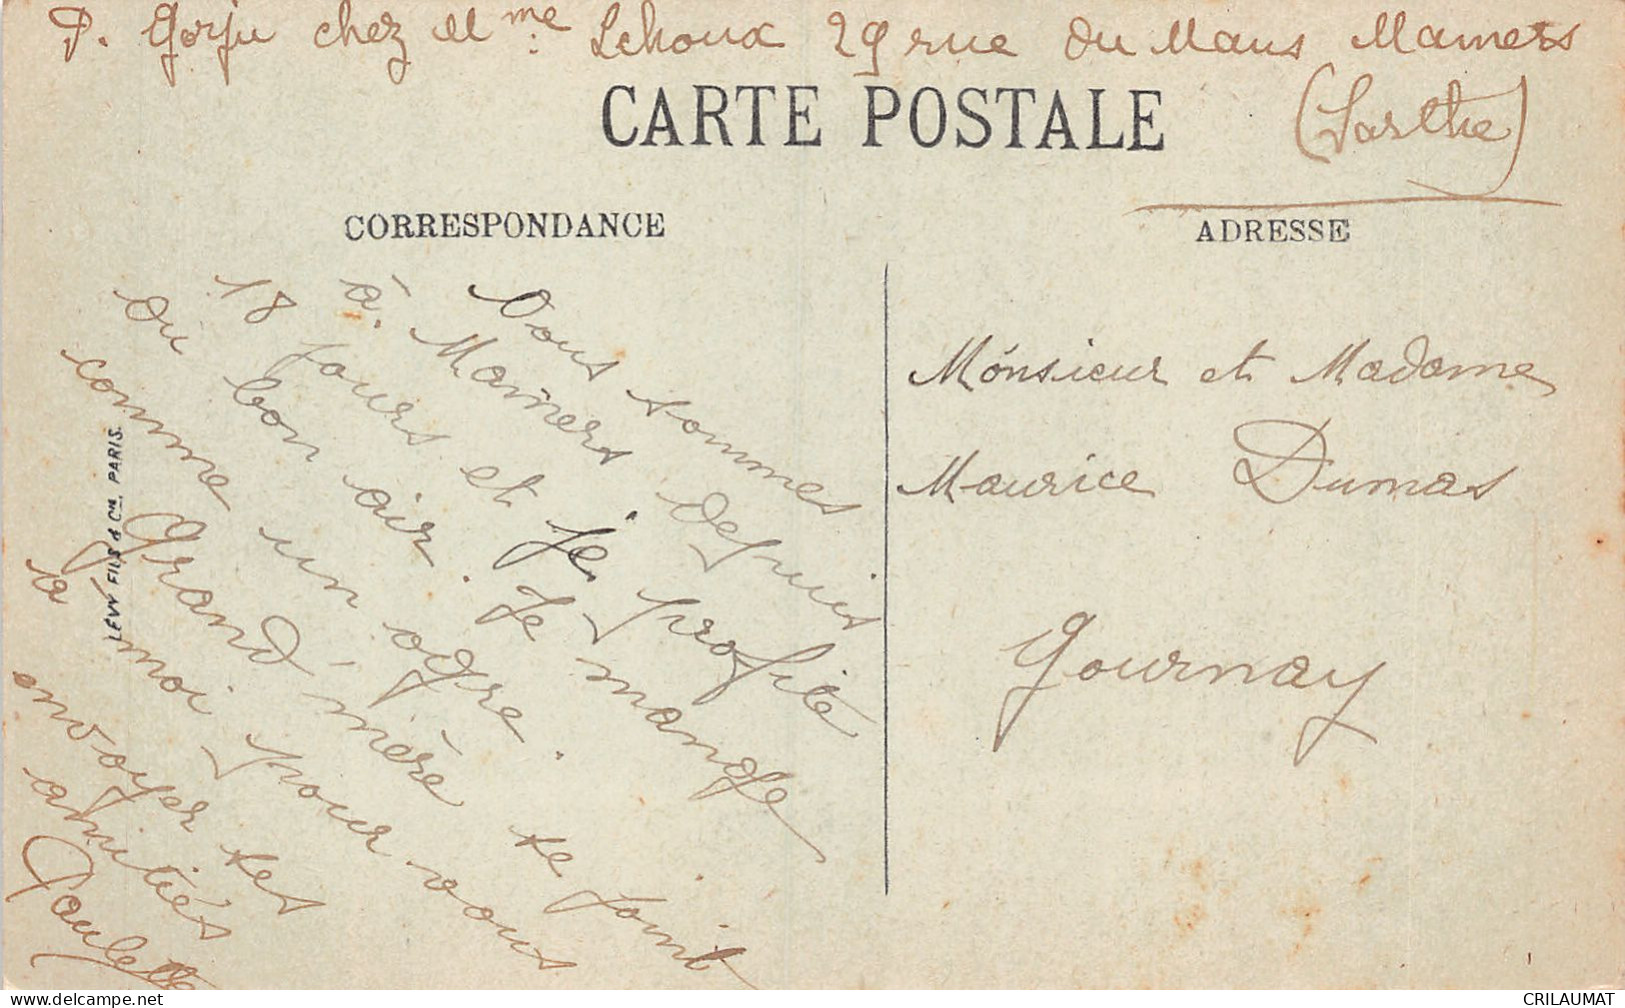 P. Gorju chez Mme Lehoux 29 rue du Mans Mamers
(Sarthe)
CARTE POSTALE
CORRESPONDANCE
ADRESSE
Nous sommes
à Mamers depuis
18 jours et je profite
du bon air. Je mange
comme un ogre.
Grand'mère se joint
à moi pour vous
envoyer ses
amitiés
Paulette
Monsieur et Madame
Maurice Dumas
Gournay
LEVY FILS & Cie, PARIS.
delcampe.net
CRILAUMAT